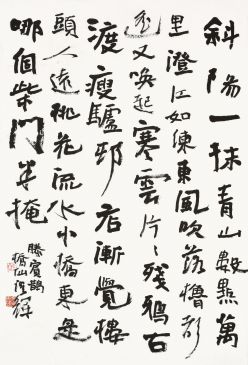 斜陽一抹青山數點萬
里澄江如練東風吹落櫓聲
遙又喚起寒雲片片殘鴉古
渡瘦驢邨店漸覺樓
頭人遠桃花流水小橋東是
哪個柴門半掩
滕賓鵲
橋仙